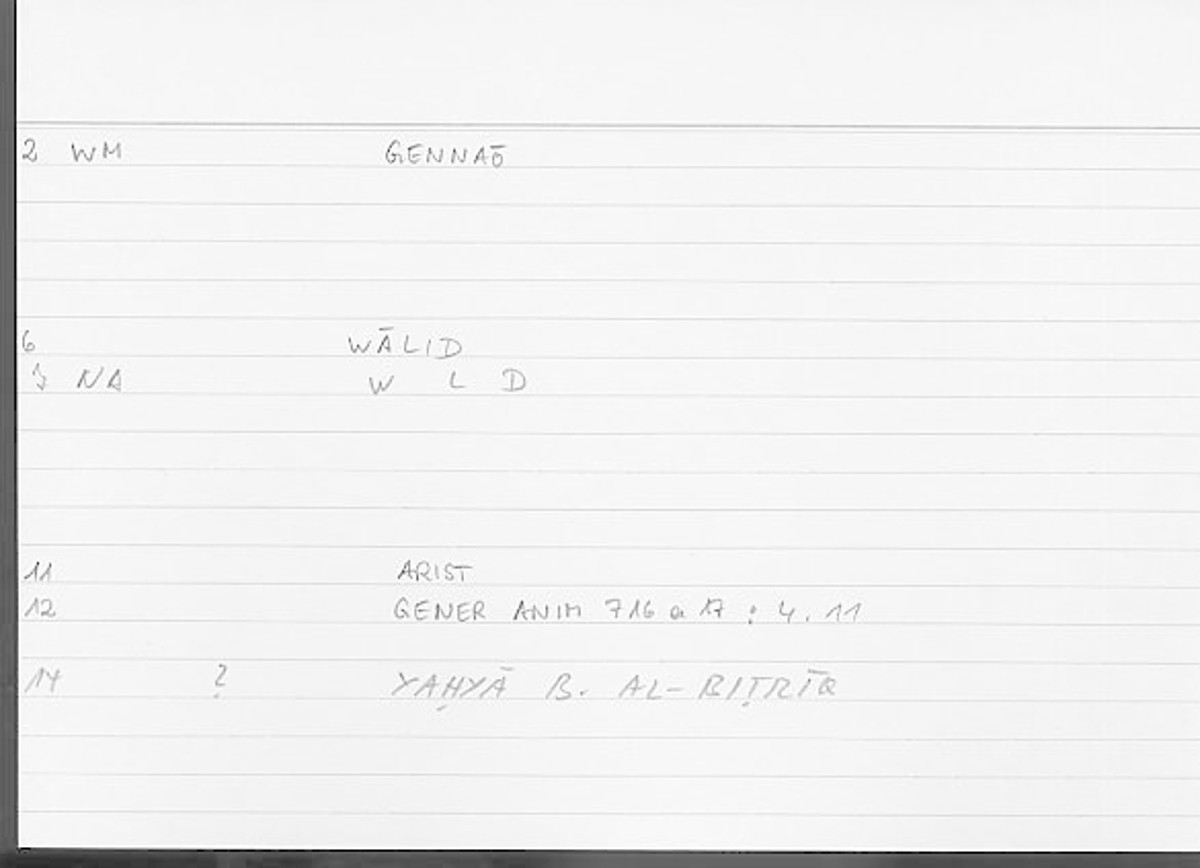 2 WM GENNAŌ
6 WĀLID
7 NA W L D
11 ARIST
12 GENER ANIM 716 a 17 : 4. 11
14 ? YAḤYĀ B. AL-BIṬRĪQ